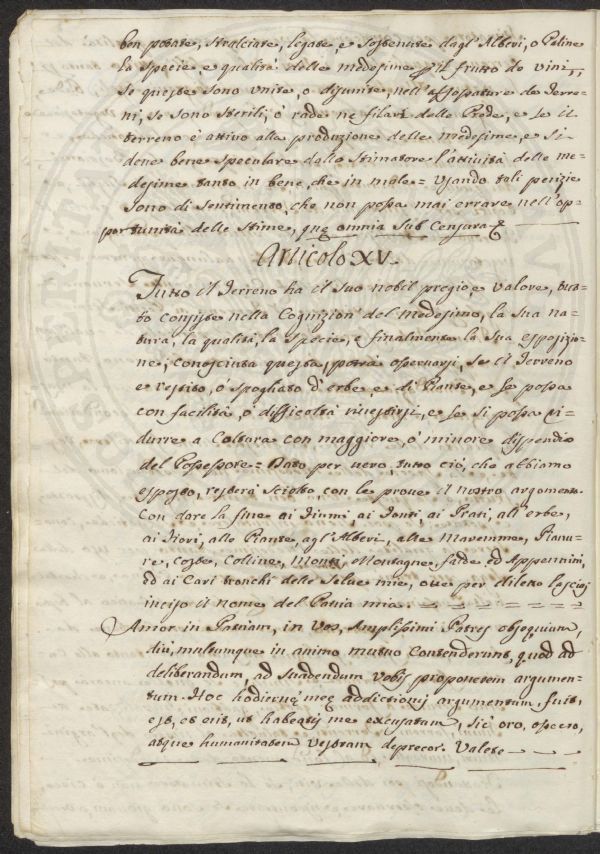 ben potate, stralciate, legate, e sostentute dagl'Alberi, o Paline
la specie, e qualità delle medesime p il frutto de vini,
se queste sono unite, o disunite, nell'affossature de Terre-
ni, se sono sterili, ò rade ne filari delle Prode, e se il
terreno è attivo alla produzione delle medesime, e si
deve bene speculare dallo Stimatore l'attività delle me-
desime tanto in bene, che in male = Usando tali perizie
sono di sentimento, che non possa mai errare nell'op-
portunità delle Stime, que omnia Sub Censura
Articolo XV.
Tutto il Terreno ha il suo nobil pregio, e valore, tut-
to consiste nella Cognizion' del medesimo, la sua na-
tura, la qualità, la specie, e finalmente la sua esposizio-
ne; conosciuta questa, potrà osservarsi, se il Terreno
è vestito, ò spogliato d'erbe, e di Piante, e se possa
con facilità, ò difficoltà rinvestirsi, e se si possa ri-
durre a Coltura con maggiore, ò minore dispendio
del Possessore = Dato per vero, tutto ciò, che abbiamo
esposto, resterà sciolto, con le prove il nostro argomento.
Con dare la fine ai Fiumi, ai Fonti, ai Prati, all'erbe,
ai Fiori, alle Piante, agl'Alberi, alle Maremme, Pianu-
re, Coste, Colline, Monti, Montagne, fade ed Appennini,
ed ai Cari tronchi delle Selve mie, ove per diletto lasciai
inciso il nome del Patria mia. = = = = = =
Amor in Patriam, in Vos, Amplissimi Patres obsequium,
diu, multumque in animo mutuo Contenderunt, quod ad
deliberandum, ad suadendum vobis proponerem argumen-
tum. Hoc hodierne mee addictionis argumentum, fuit,
est, et erit, ut habeatis me excusatum, sic oro, ossecro,
atque humanitatem vestram deprecor. Valete